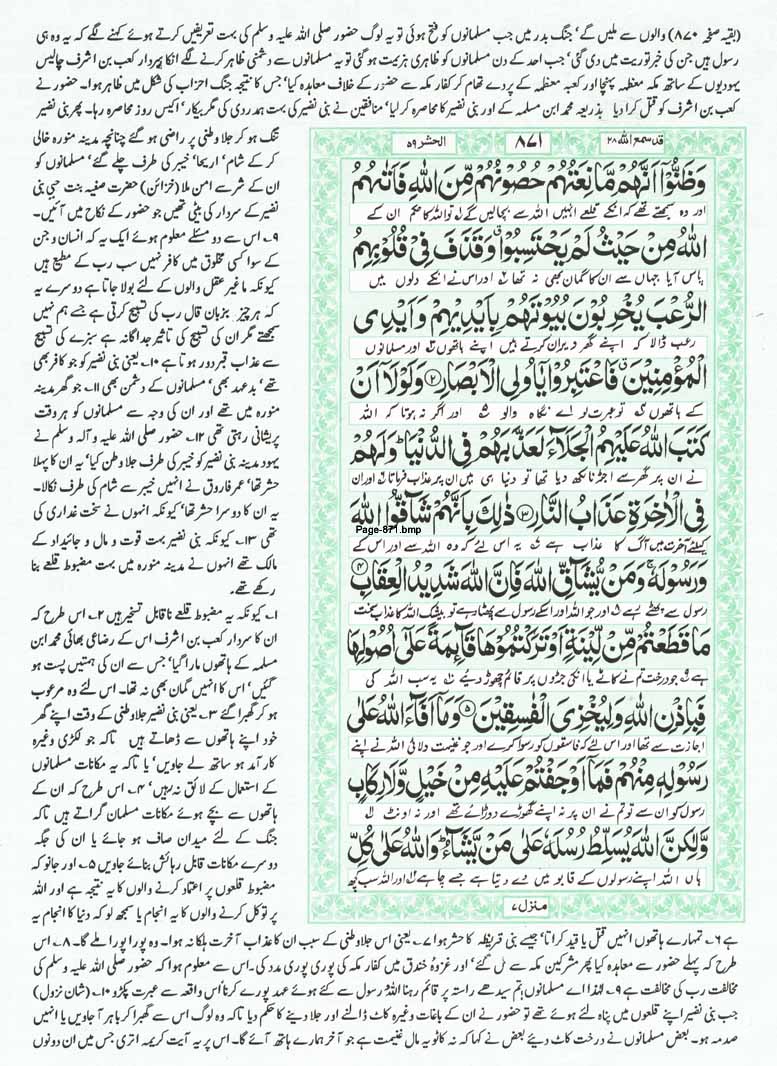 (بقیہ صفحہ ۸۷۰) والوں سے ملیں گے، جنگ بدر میں جب مسلمانوں کو فتح ہوئی تو یہ لوگ حضور صلی اللہ علیہ وسلم کی بہت تعریفیں کرتے ہوئے کہنے لگے کہ یہ وہ ہی
رسول ہیں جن کی خبر توریت میں دی گئی، جب احد کے دن مسلمانوں کو ظاہری ہزیمت ہو گئی تو یہ مسلمانوں سے دشمنی ظاہر کرنے لگے انکا سردار کعب بن اشرف چالیس
یہودیوں کے ساتھ مکہ معظمہ پہنچا اور کعبہ معظمہ کے پردے تھام کر کفار مکہ سے حضور کے خلاف معاہدہ کیا، جس کا نتیجہ جنگ احزاب کی شکل میں ظاہر ہوا۔ حضور نے
کعب بن اشرف کو قتل کرا دیا بذریعہ محمد ابن مسلمہ کے اور بنی نضیر کا محاصرہ کر لیا، منافقین نے بنی نضیر کی بہت ہمدردی کی مگر بیکار، اکیس روز محاصرہ رہا۔ پھر بنی نضیر
تنگ ہو کر جلا وطنی پر راضی ہو گئے چنانچہ مدینہ منورہ خالی
کر کے شام، اریحا، خیبر کی طرف چلے گئے، مسلمانوں کو
ان کے شر سے امن ملا (خزائن) حضرت صفیہ بنت حیی بنی
نضیر کے سردار کی بیٹی تھیں جو حضور کے نکاح میں آئیں۔
۹۔ اس سے دو مسئلے معلوم ہوئے ایک یہ کہ انسان و جن
کے سوا کسی مخلوق میں کافر نہیں سب رب کے مطیع ہیں
کیونکہ ما غیر عقل والوں کے لئے بولا جاتا ہے دوسرے یہ
کہ ہر چیز بزبان قال رب کی تسبیح کرتی ہے جسے ہم نہیں
سمجھتے مگر ان کی تسبیح کی تاثیر جداگانہ ہے سبزے کی تسبیح
سے عذاب قبر دور ہوتا ہے ۱۰۔ یعنی بنی نضیر کو جو کافر بھی
تھے، بد عہد بھی، مسلمانوں کے دشمن بھی ۱۱۔ جو گھر مدینہ
منورہ میں تھے اور ان کی وجہ سے مسلمانوں کو ہر وقت
پریشانی رہتی تھی ۱۲۔ حضور صلی اللہ علیہ و آلہ وسلم نے
یہود مدینہ بنی نضیر کو خیبر کی طرف جلا وطن کیا، یہ ان کا پہلا
حشر تھا، عمر فاروق نے انہیں خیبر سے شام کی طرف نکالا۔
یہ ان کا دوسرا حشر تھا، کیونکہ انہوں نے سخت غداری کی
تھی ۱۳۔ کیونکہ بنی نضیر بہت قوت و مال و جائیداد کے
مالک تھے انہوں نے مدینہ منورہ میں بہت مضبوط قلعے بنا
رکھے تھے۔
۱۔ کیونکہ یہ مضبوط قلعے ناقابل تسخیر ہیں ۲۔ اس طرح کہ
ان کا سردار کعب بن اشرف اس کے رضاعی بھائی محمد ابن
مسلمہ کے ہاتھوں مارا گیا، جس سے ان کی ہمتیں پست ہو
گئیں، اس کا انہیں گمان بھی نہ تھا۔ اس لئے وہ مرعوب
ہو کر گھبرا گئے ۳۔ یعنی بنی نضیر جلا وطنی کے وقت اپنے گھر
خود اپنے ہاتھوں سے ڈھاتے ہیں تاکہ جو لکڑی وغیرہ
کار آمد ہو ساتھ لے جاویں، یا تاکہ یہ مکانات مسلمانوں
کے استعمال کے لائق نہ رہیں، ۴۔ اس طرح کہ ان کے
ہاتھوں سے بچے ہوئے مکانات مسلمان گراتے ہیں تاکہ
جنگ کے لئے میدان صاف ہو جائے یا ان کی جگہ
دوسرے مکانات قابل رہائش بنائے جاویں ۵۔ اور جانو کہ
مضبوط قلعوں پر اعتماد کرنے والوں کا یہ نتیجہ ہے اور اللہ
پر توکل کرنے والوں کا یہ انجام یا سمجھ لو کہ دنیا کا انجام یہ
قد سمع اللہ ۲۸
۸۷۱
الحشر ۵۹
وَظَنُّوْۤا اَنَّهُمْ مَّانِعَتُهُمْ حُصُوْنُهُمْ مِّنَ اللّٰهِ فَاَتٰىهُمُ
اور وہ سمجھتے تھے کہ انکے قلعے انہیں اللہ سے بچالیں گے ۱ تو اللہ کا حکم ان کے
اللّٰهُ مِنْ حَيْثُ لَمْ يَحْتَسِبُوْا وَقَذَفَ فِيْ قُلُوْبِهِمُ
پاس آیا جہاں سے ان کا گمان بھی نہ تھا ۲ اور اس نے انکے دلوں میں
الرُّعْبَ يُخْرِبُوْنَ بُيُوْتَهُمْ بِاَيْدِيْهِمْ وَاَيْدِي
رعب ڈالا کہ اپنے گھر ویران کرتے ہیں اپنے ہاتھوں ۳ اور مسلمانوں
الْمُؤْمِنِيْنَ فَاعْتَبِرُوْا يٰۤاُولِي الْاَبْصَارِ ۝۲ وَلَوْلَاۤ اَنْ
کے ہاتھوں ۴ تو عبرت لو اے نگاہ والو ۵ اور اگر نہ ہوتا کہ اللہ
كَتَبَ اللّٰهُ عَلَيْهِمُ الْجَلَآءَ لَعَذَّبَهُمْ فِي الدُّنْيَا وَلَهُمْ
نے ان پر گھر سے اجڑنا لکھ دیا تھا تو دنیا ہی میں ان پر عذاب فرماتا ۶ اور ان
فِي الْاٰخِرَةِ عَذَابُ النَّارِ ۝۳ ذٰلِكَ بِاَنَّهُمْ شَآقُّوا اللّٰهَ
Page-871.bmp
کیلئے آخرت میں آگ کا عذاب ہے ۷ یہ اس لئے کہ وہ اللہ سے اور اس کے
وَرَسُوْلَهٗ وَمَنْ يُّشَآقِّ اللّٰهَ فَاِنَّ اللّٰهَ شَدِيْدُ الْعِقَابِ ۝۴
رسول سے پھٹے رہے ۸ اور جو اللہ اور اسکے رسول سے پھٹا رہے تو بیشک اللہ کا عذاب سخت
مَا قَطَعْتُمْ مِّنْ لِّيْنَةٍ اَوْ تَرَكْتُمُوْهَا قَآئِمَةً عَلٰۤى اُصُوْلِهَا
ہے ۹ جو درخت تم نے کاٹے یا انکی جڑوں پر قائم چھوڑ دیئے ۱۰ یہ سب اللہ کی
فَبِاِذْنِ اللّٰهِ وَلِيُخْزِيَ الْفٰسِقِيْنَ ۝۵ وَمَاۤ اَفَآءَ اللّٰهُ عَلٰى
اجازت سے تھا اور اس لئے کہ فاسقوں کو رسوا کرے اور جو غنیمت دلائی اللہ نے اپنے
رَسُوْلِهٖ مِنْهُمْ فَمَاۤ اَوْجَفْتُمْ عَلَيْهِ مِنْ خَيْلٍ وَّلَا رِكَابٍ
رسول کو ان سے تو تم نے ان پر نہ اپنے گھوڑے دوڑائے تھے اور نہ اونٹ
وَّلٰكِنَّ اللّٰهَ يُسَلِّطُ رُسُلَهٗ عَلٰى مَنْ يَّشَآءُ وَاللّٰهُ عَلٰى كُلِّ
ہاں اللہ اپنے رسولوں کے قابو میں دے دیتا ہے جسے چاہے اور اللہ سب کچھ
منزل ۷
ہے ۶۔ تمہارے ہاتھوں انہیں قتل یا قید کراتا، جیسے بنی قریظہ کا حشر ہوا ۷۔ یعنی اس جلا وطنی کے سبب ان کا عذاب آخرت ہلکا نہ ہوا۔ وہ پورا پورا ملے گا۔ ۸۔ اس
طرح کہ پہلے حضور سے معاہدہ کیا پھر مشرکین مکہ سے مل گئے، اور غزوہ خندق میں کفار مکہ کی پوری پوری مدد کی۔ اس سے معلوم ہوا کہ حضور صلی اللہ علیہ وسلم کی
مخالفت رب کی مخالفت ہے ۹۔ لہذا اے مسلمانوں تم سیدھے راستہ پر قائم رہنا اللہ رسول سے کئے ہوئے عہد پورے کرنا اس واقعہ سے عبرت پکڑو ۱۰۔ (شان نزول)
جب بنی نضیر اپنے قلعوں میں پناہ لئے ہوئے تھے تو حضور نے ان کے باغات وغیرہ کاٹ ڈالنے اور جلا دینے کا حکم دیا تاکہ وہ لوگ اس سے گھبرا کر باہر آ جاویں یا انہیں
صدمہ ہو۔ بعض مسلمانوں نے درخت کاٹ دیئے بعض نے کہا کہ نہ کاٹو یہ مال غنیمت ہے جو آخر ہمارے ہاتھ آئے گا۔ اس پر یہ آیت کریمہ اتری جس میں ان دونوں